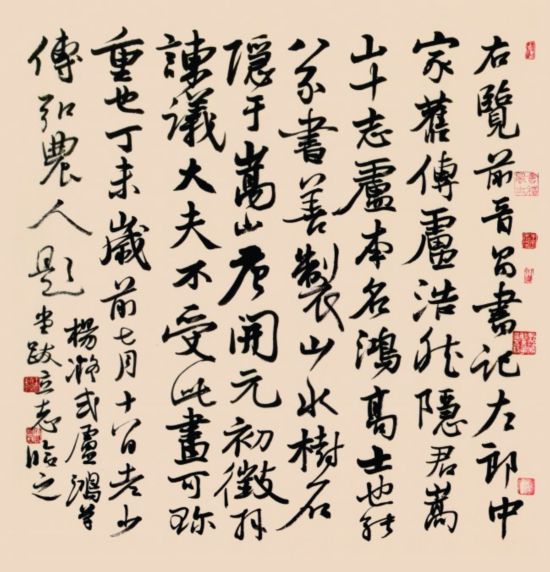 右覽前晉昌書記左郎中
家舊傳盧浩然隱君嵩
山十志盧本名鴻高士也能
八分書善製山水樹石
隱于嵩山唐開元初徵拜
諫議大夫不受此畫可珍
重也丁未歲前七月十八日老少
傅弘農人題
楊凝式盧鴻草
堂跋立志臨之